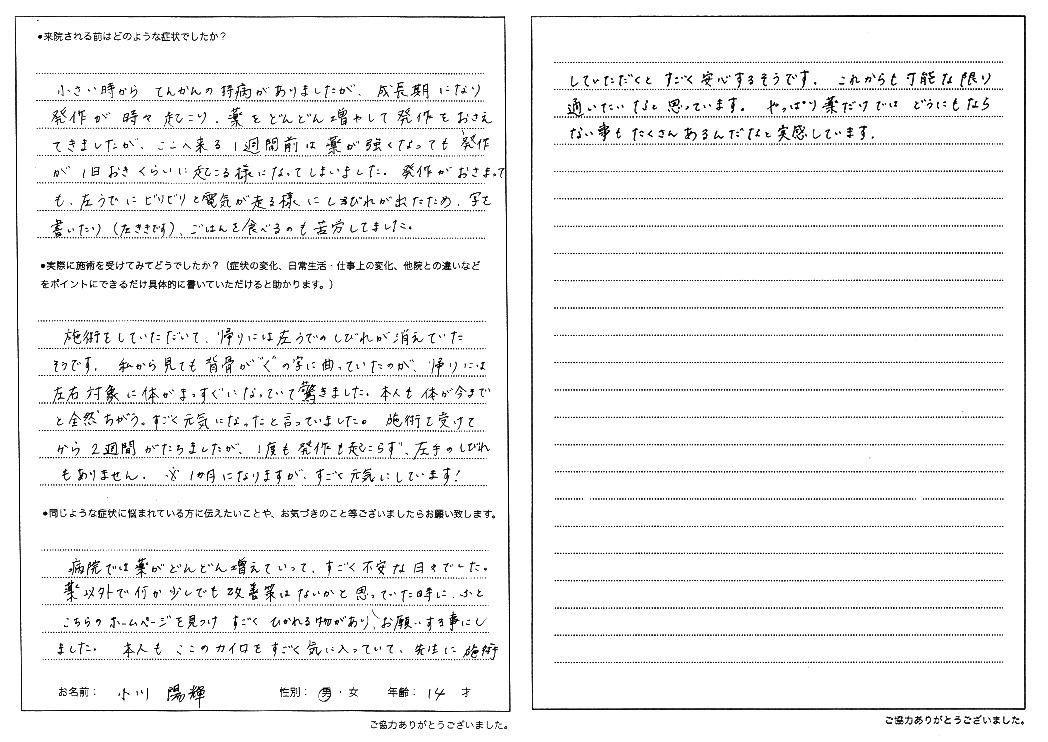 ●来院される前はどのような症状でしたか？
小さい時から てんかんの持病がありましたが、成長期になり
発作が時々起こり、薬をどんどん増やして発作をおさえ
てきましたが、ここへ来る1週間前は薬が強くなっても発作
が1日おきくらいに起こる様になってしまいました。発作がおさまって
も、左うでにビリビリと電気が走る様にしびれが出たため、字を
書いたり（左ききです）、ごはんを食べるのも苦労してました。
●実際に施術を受けてみてどうでしたか？（症状の変化、日常生活・仕事上の変化、他院との違いなど
をポイントにできるだけ具体的に書いていただけると助かります。）
施術をしていただいて、帰りには左うでのしびれが消えていた
そうです。私から見ても背骨が“く”の字に曲っていたのが、帰りには
左右対象に体がまっすぐになっていて驚きました。本人も体が今まで
と全然ちがう。すごく元気になったと言っていました。施術を受けて
から2週間がたちましたが、1度も発作も起こらず、左手のしびれ
もありません。※1か月になりますが、すごく元気にしています！
●同じような症状に悩まれている方に伝えたいことや、お気づきのこと等ございましたらお願い致します。
病院では薬がどんどん増えていって、すごく不安な日々でした。
薬以外で何か少しでも改善策はないかと思っていた時に、ふと
こちらのホームページを見つけ すごくひかれる物があり、お願いする事にし
ました。本人も ここのカイロをすごく気に入っていて、先生に施術
お名前： 小川 陽輝 性別：男・女 年齢：14 才
ご協力ありがとうございました。
していただくと すごく安心するそうです。これからも可能な限り
通いたいなと思っています。やっぱり薬だけでは どうにもなら
ない事も たくさんあるんだなと実感しています。
ご協力ありがとうございました。